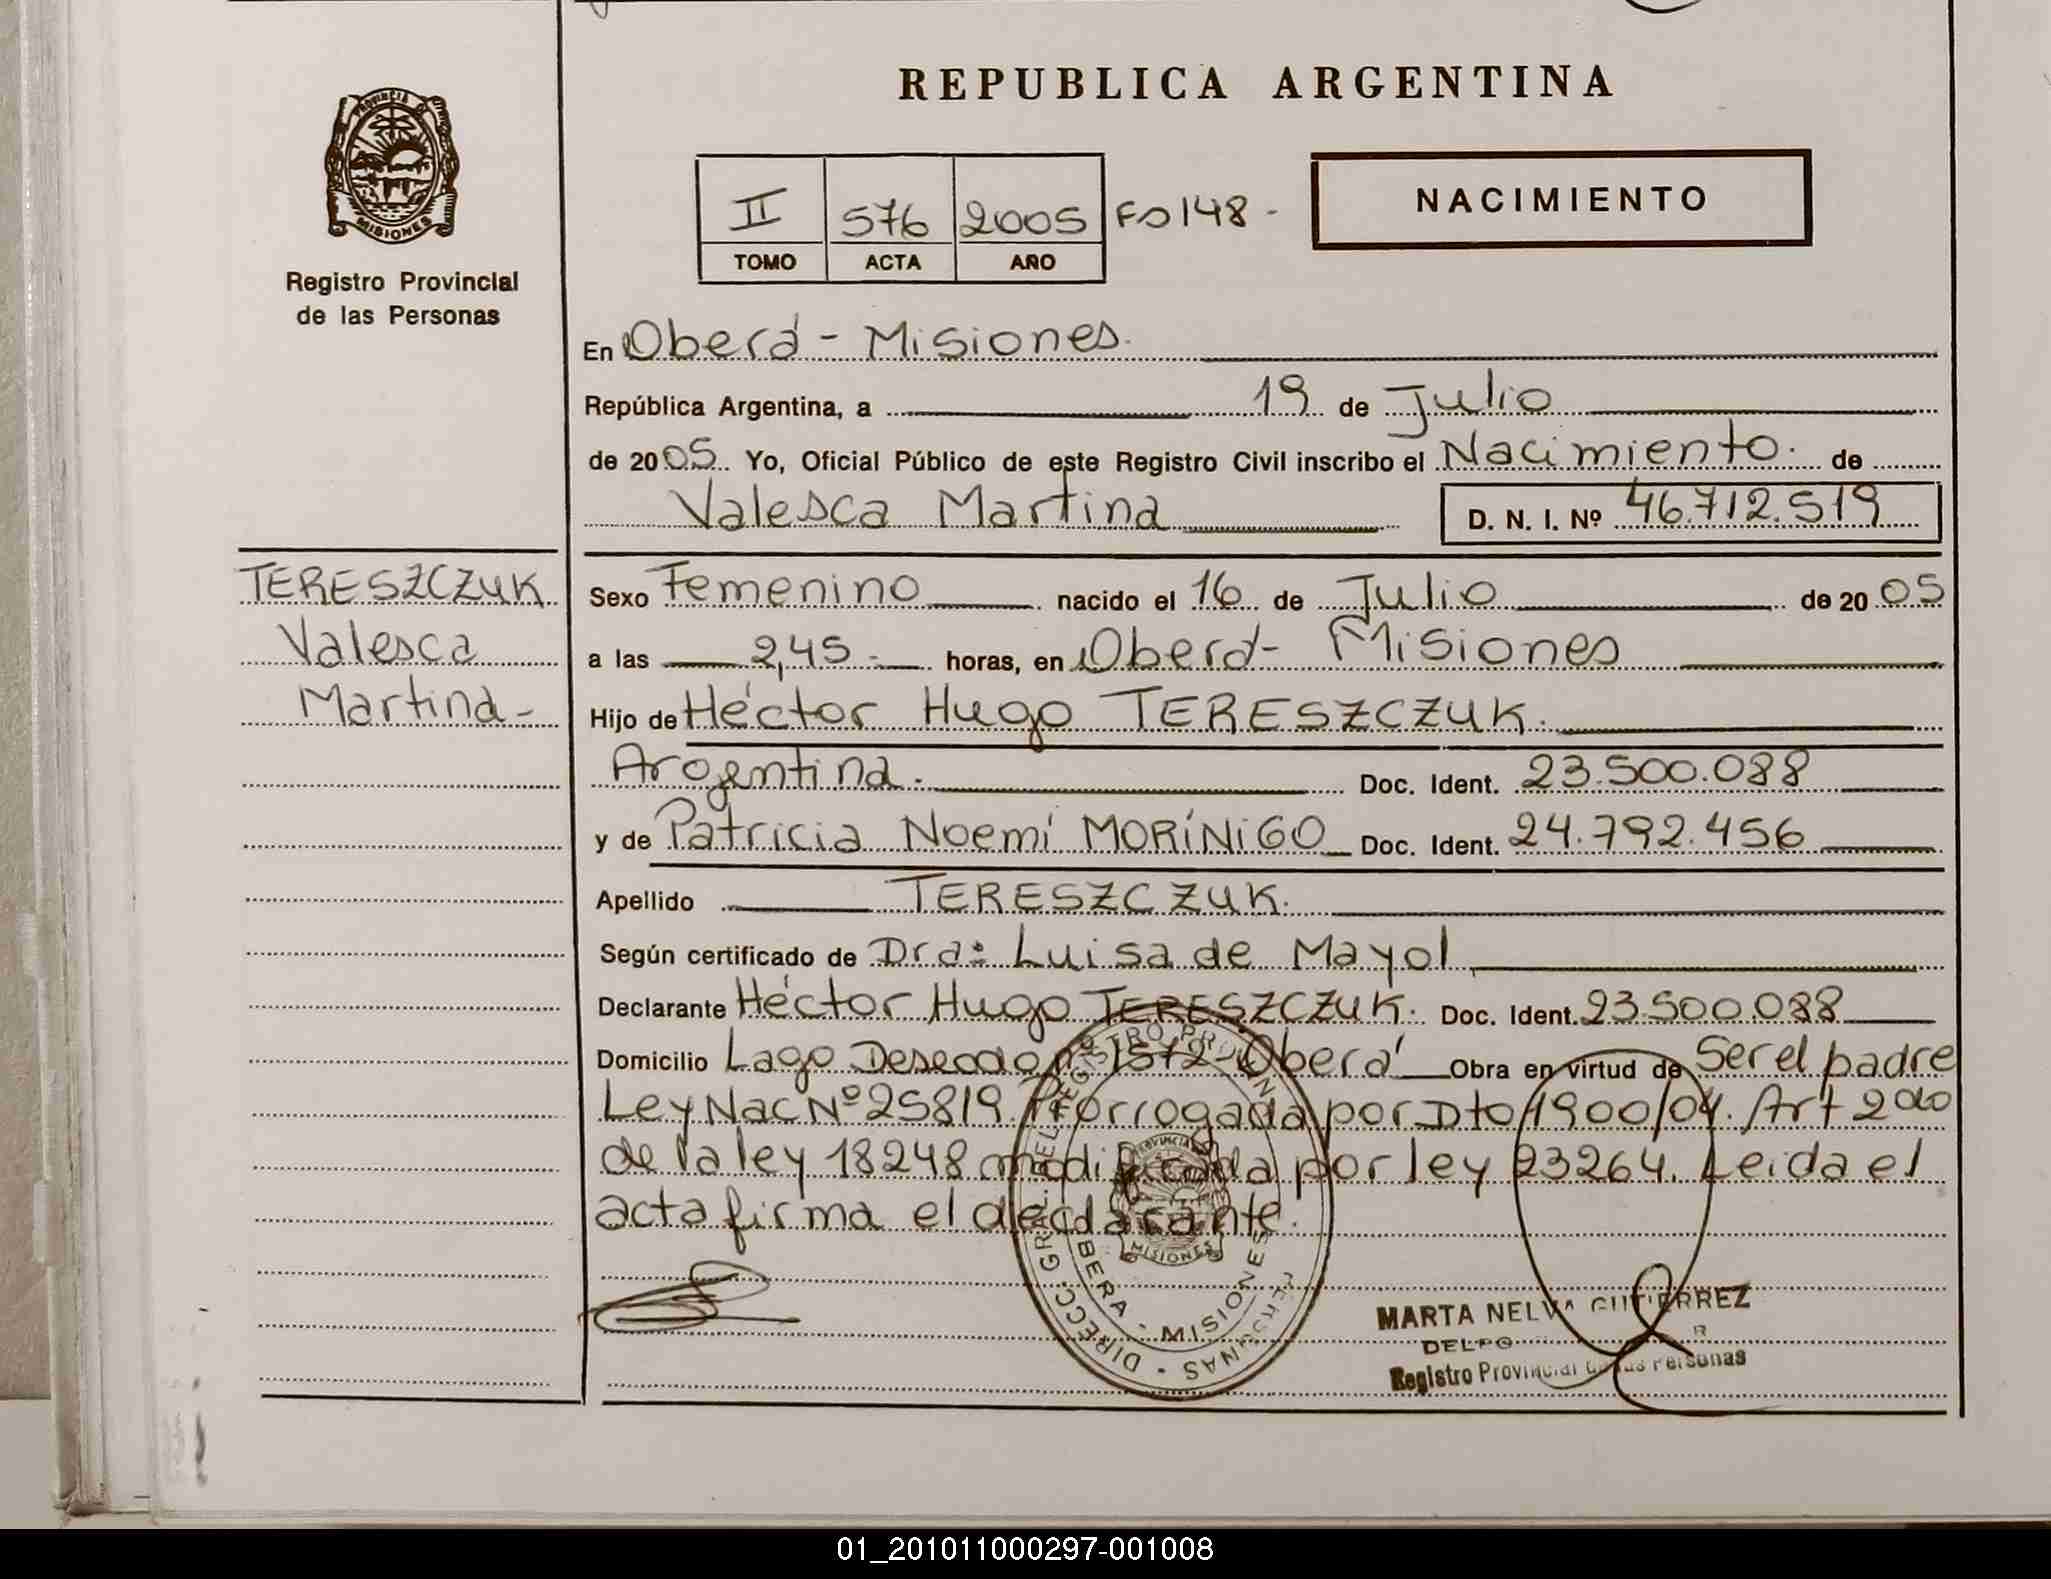 REPUBLICA ARGENTINA
PROVINCIA DE
MISIONES
Registro Provincial
de las Personas
II 576 2005 Fo 148 -
TOMO ACTA AÑO
NACIMIENTO
En Oberá - Misiones.
República Argentina, a 19 de Julio
de 2005. Yo, Oficial Público de este Registro Civil inscribo el Nacimiento. de
Valesca Martina D. N. I. Nº 46.712.519
TERESZCZUK
Valesca
Martina -
Sexo Femenino nacido el 16 de Julio de 2005
a las 2,45 - horas, en Oberá - Misiones
Hijo de Héctor Hugo TERESZCZUK.
Argentina. Doc. Ident. 23.500.088
y de Patricia Noemí MORÍNIGO Doc. Ident. 24.792.456
Apellido TERESZCZUK.
Según certificado de Dra: Luisa de Mayol
Declarante Héctor Hugo TERESZCZUK. Doc. Ident. 23.500.088
Domicilio Lago Deseado nº 1572 - Oberá Obra en virtud de Ser el padre
Ley Nac Nº 25819. Prorrogada por Dto 1900/04. Art 2do
de la ley 18248 modificada por ley 23264. Leida el
acta firma el declarante.
MISIONES
MISIONES
MARTA NELVA GUTIERREZ
Registro Provincial de las Personas
01_201011000297-001008